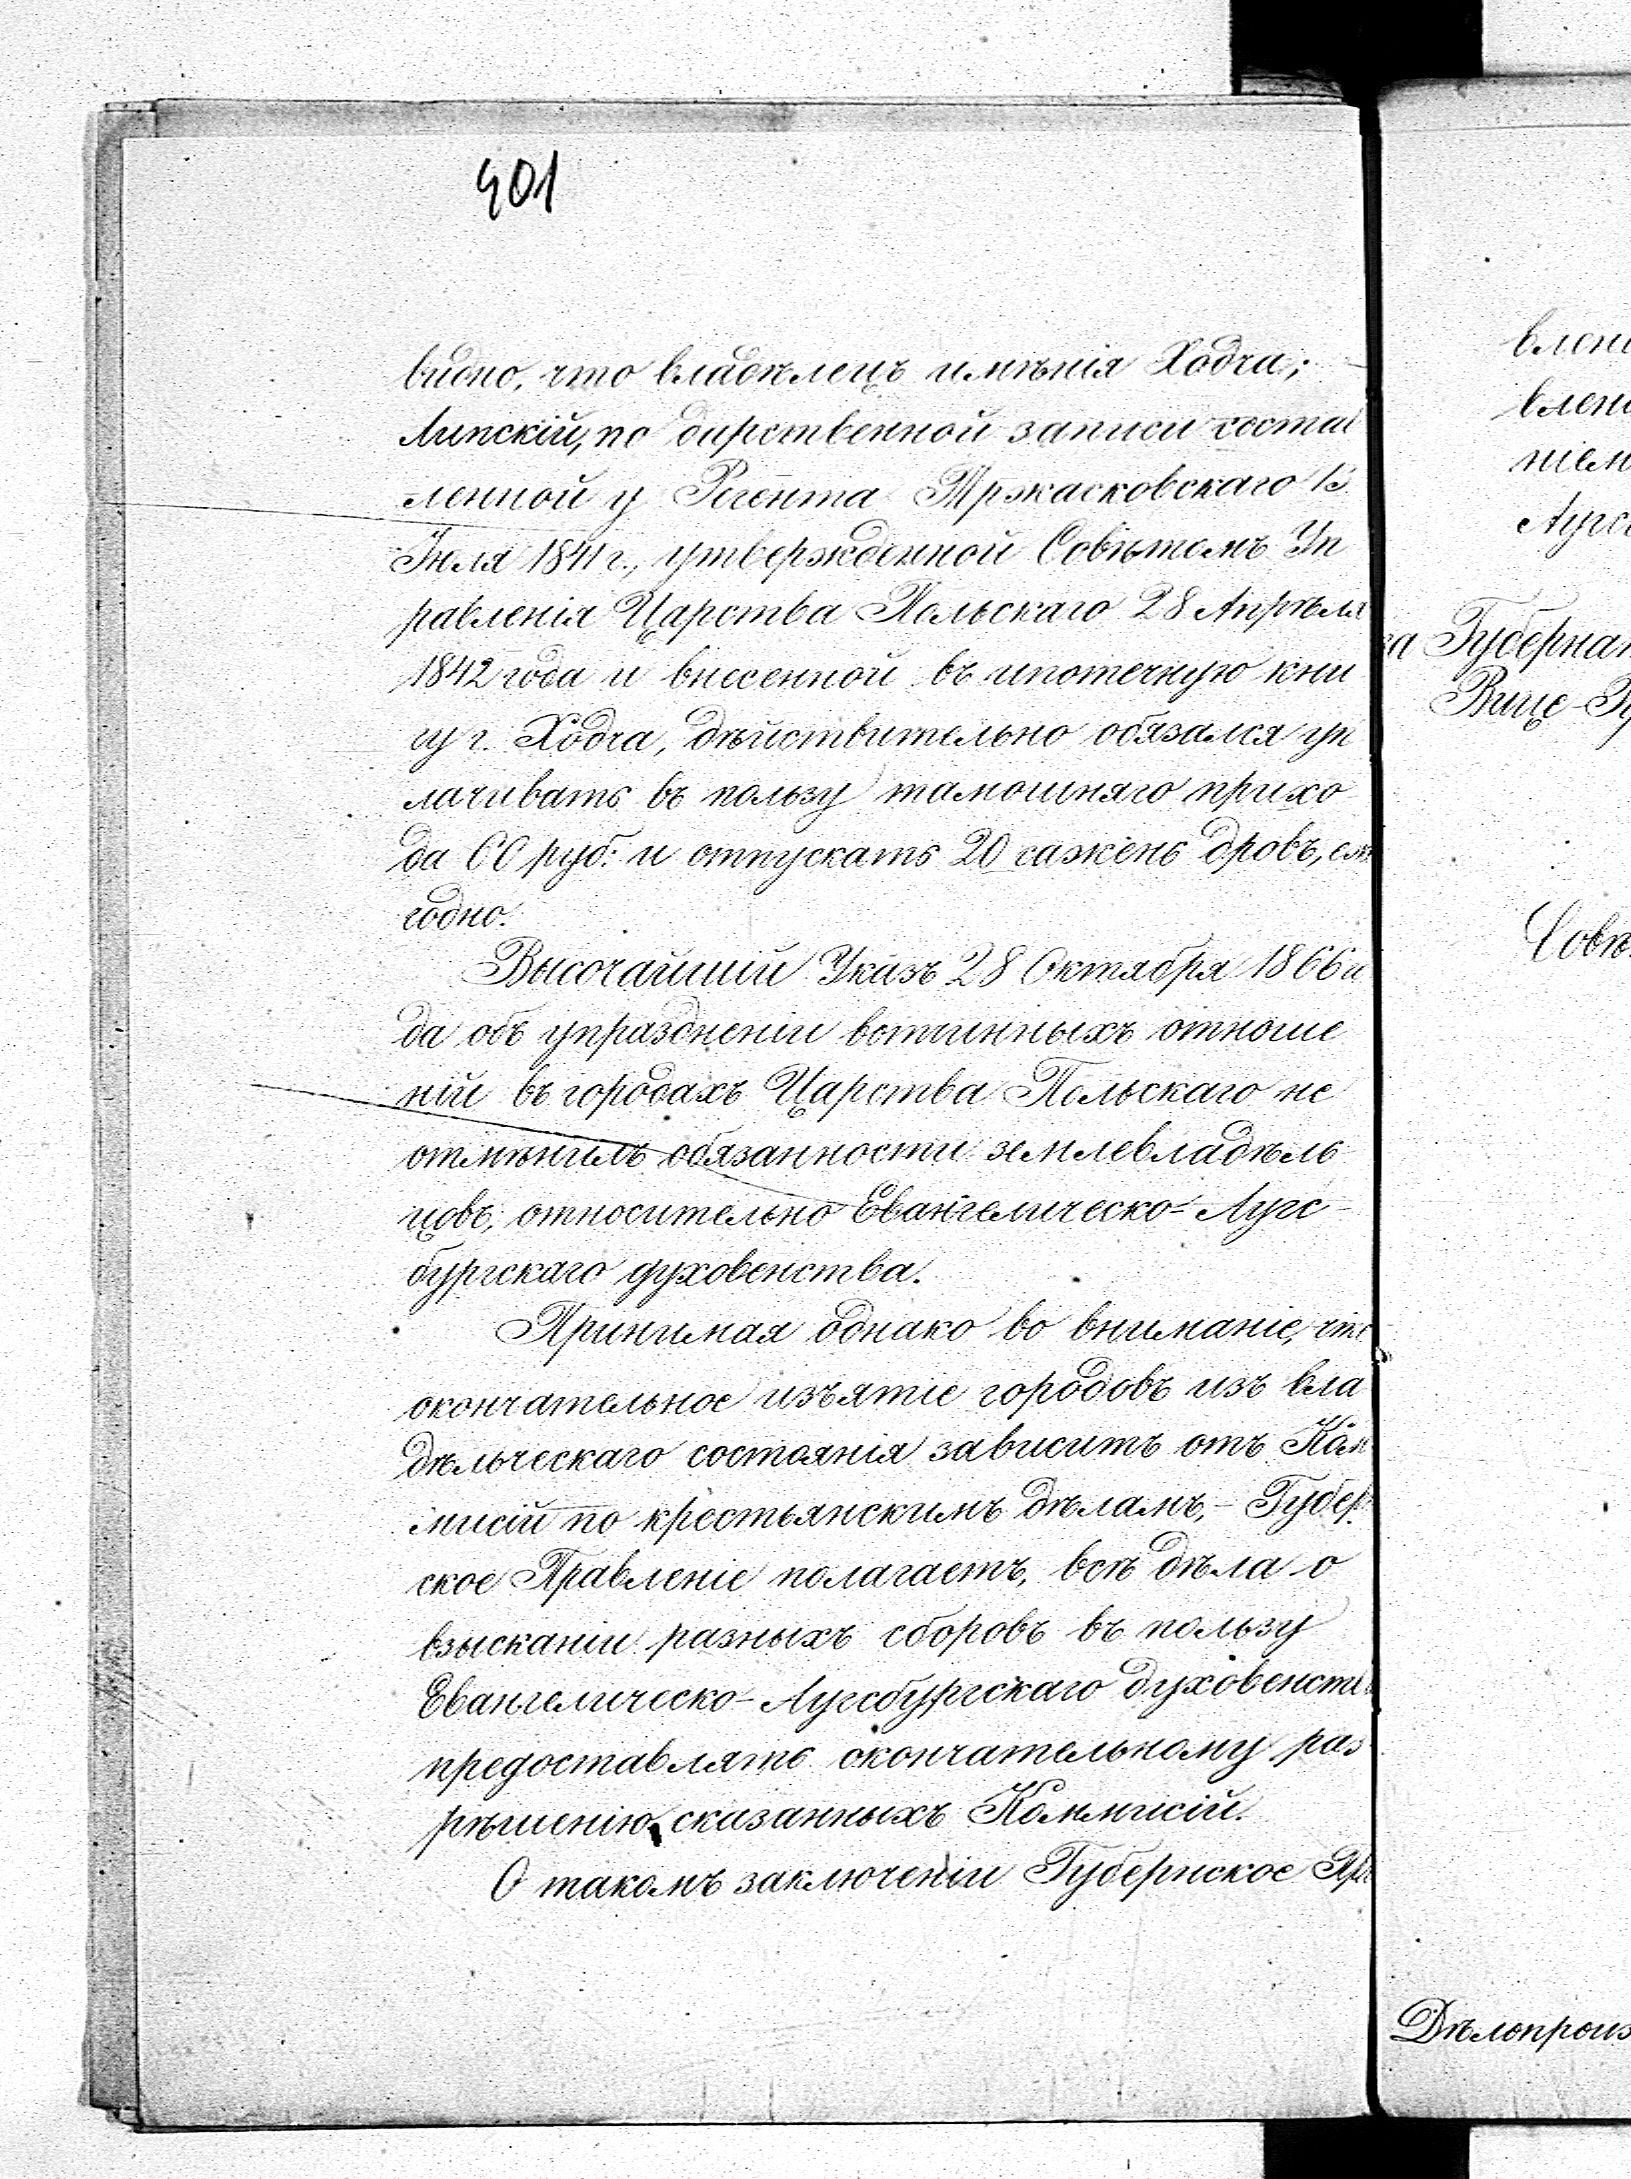 401
видно, что владѣлецъ имѣнія Ходча,
Липскій, по дарственной записи состав
ленной у Регента Тржасковскаго 13
Іюля 1841 г., утвержденной Совѣтомъ Уп
равленія Царства Польскаго 28 Апрѣля
1842 года и внесенной въ ипотечную кни
гу г. Ходча, дѣйствительно обязался уп
лачивать въ пользу тамошняго прихо
да руб: и отпускать 20 сажень дровъ, еже
годно.
Высочайшій Указъ 28 Октября 1866 го
да объ упраздненіи вотчинныхъ отноше
ній въ городахъ Царства Польскаго не
отмѣнилъ обязанности землевладѣль
цовъ, относительно Евангелическо-Аугс-
бургскаго духовенства.
Принимая однако во вниманіе, что
окончательное изъятіе городовъ изъ вла
дѣльческаго состоянія зависитъ отъ Ком
мисій по крестьянскимъ дѣламъ, - Губерн
ское Правленіе полагаетъ, всѣ дѣла о
взысканіи разныхъ сборовъ въ пользу
Евангелическо-Аугсбургскаго духовенства
предоставлять окончательному раз
рѣшенію сказанныхъ Коммисій.
О такомъ заключеніи Губернское Пра
влені
влені
ніем
Аугс
Губернат
Вице-Гу
Совѣ
Дѣлопроиз